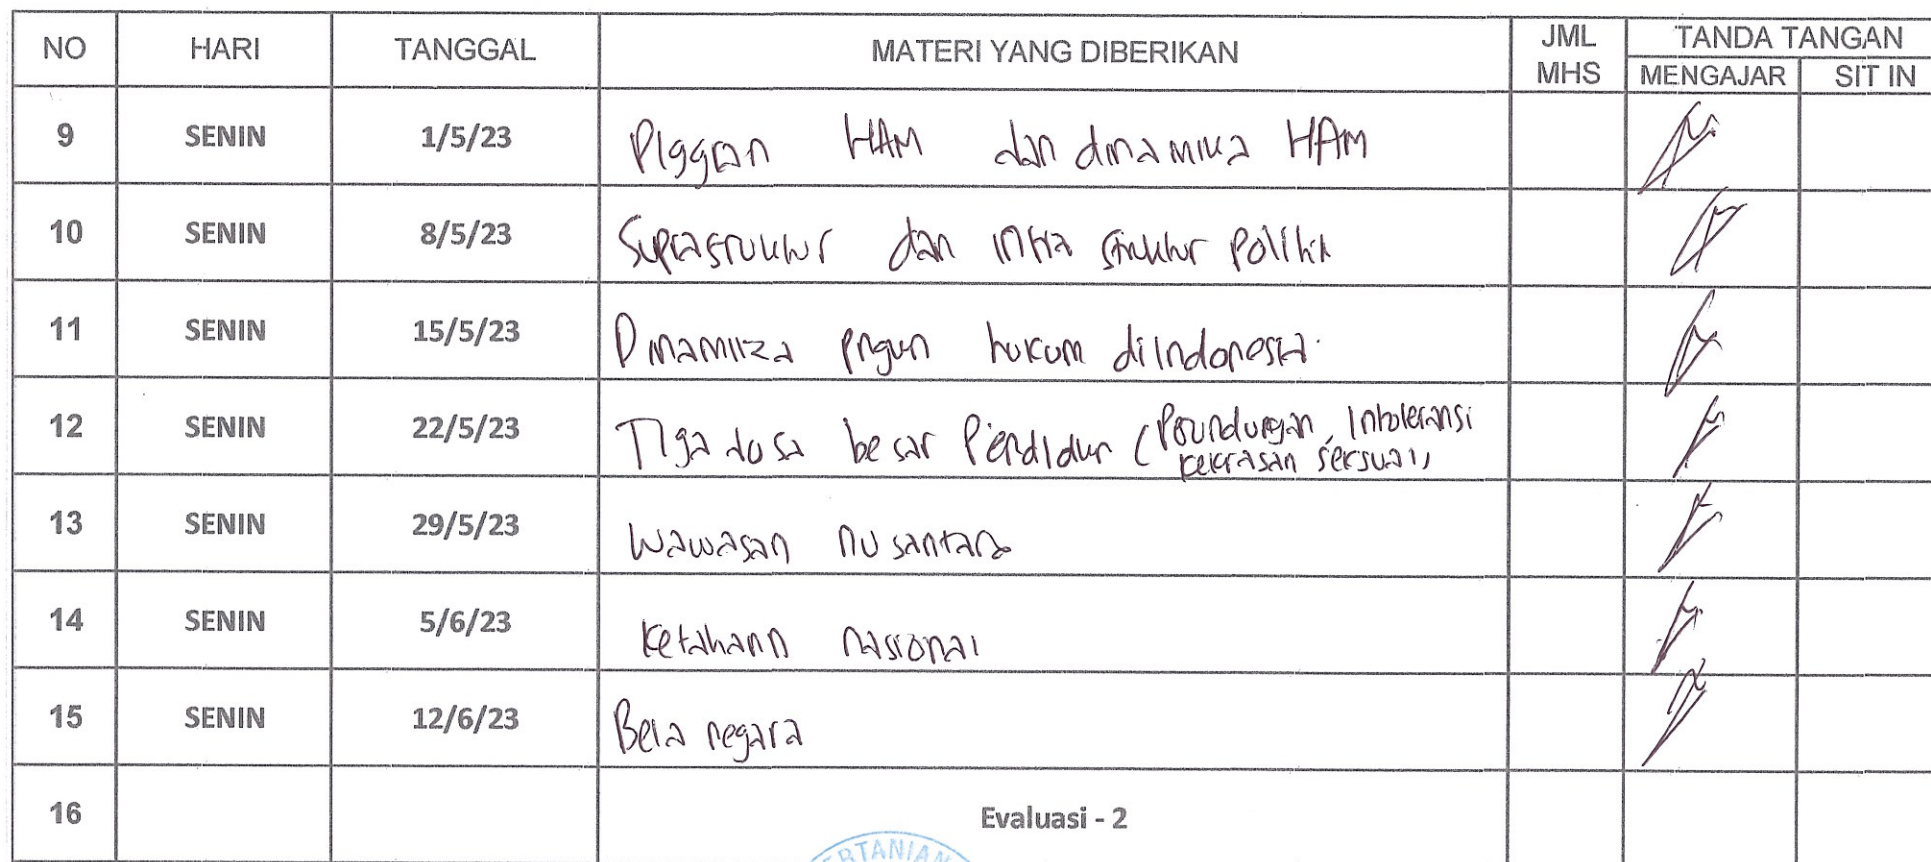 NO HARI TANGGAL MATERI YANG DIBERIKAN JML MHS TANDA TANGAN
MENGAJAR SIT IN
9 SENIN 1/5/23 HAM dan dinamika HAM
10 SENIN 8/5/23 Suprastruktur dan infra struktur Politik
11 SENIN 15/5/23 Dinamika hukum di Indonesia.
12 SENIN 22/5/23 Tiga dosa besar (Perundungan, Intoleransi
kekerasan seksual)
13 SENIN 29/5/23 Wawasan nusantara
14 SENIN 5/6/23 Ketahann nasional
15 SENIN 12/6/23 Bela negara
16 Evaluasi - 2
PERTANIAN